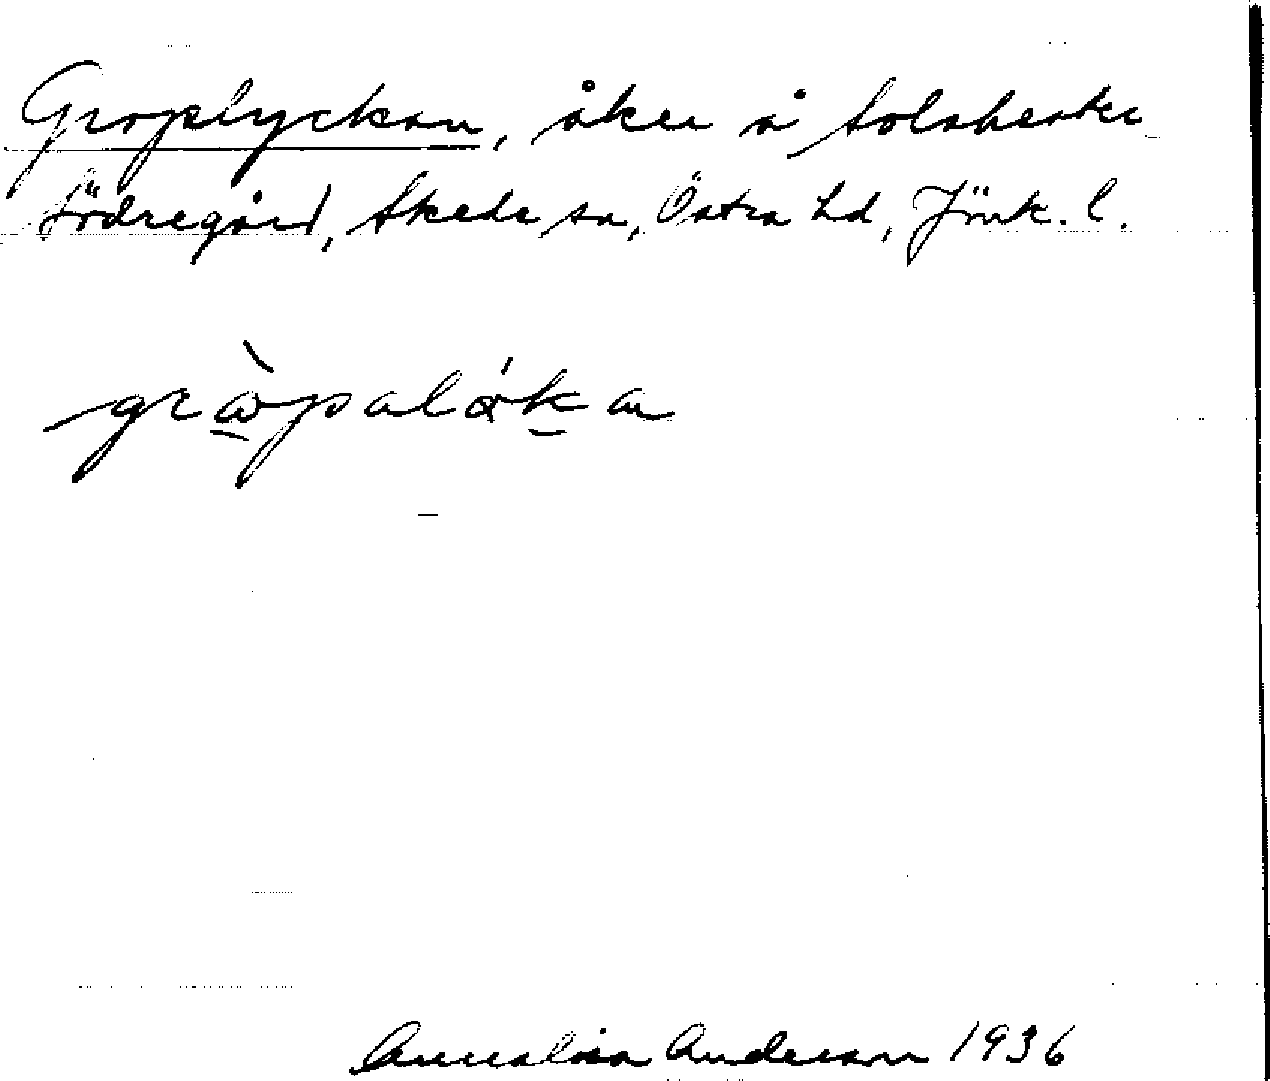 Groplyckan, åker å Solaberke
Södregård, Skede sn, Östra hd, Jönk. l.
gròpalýkan
Annalisa Anderson 1936